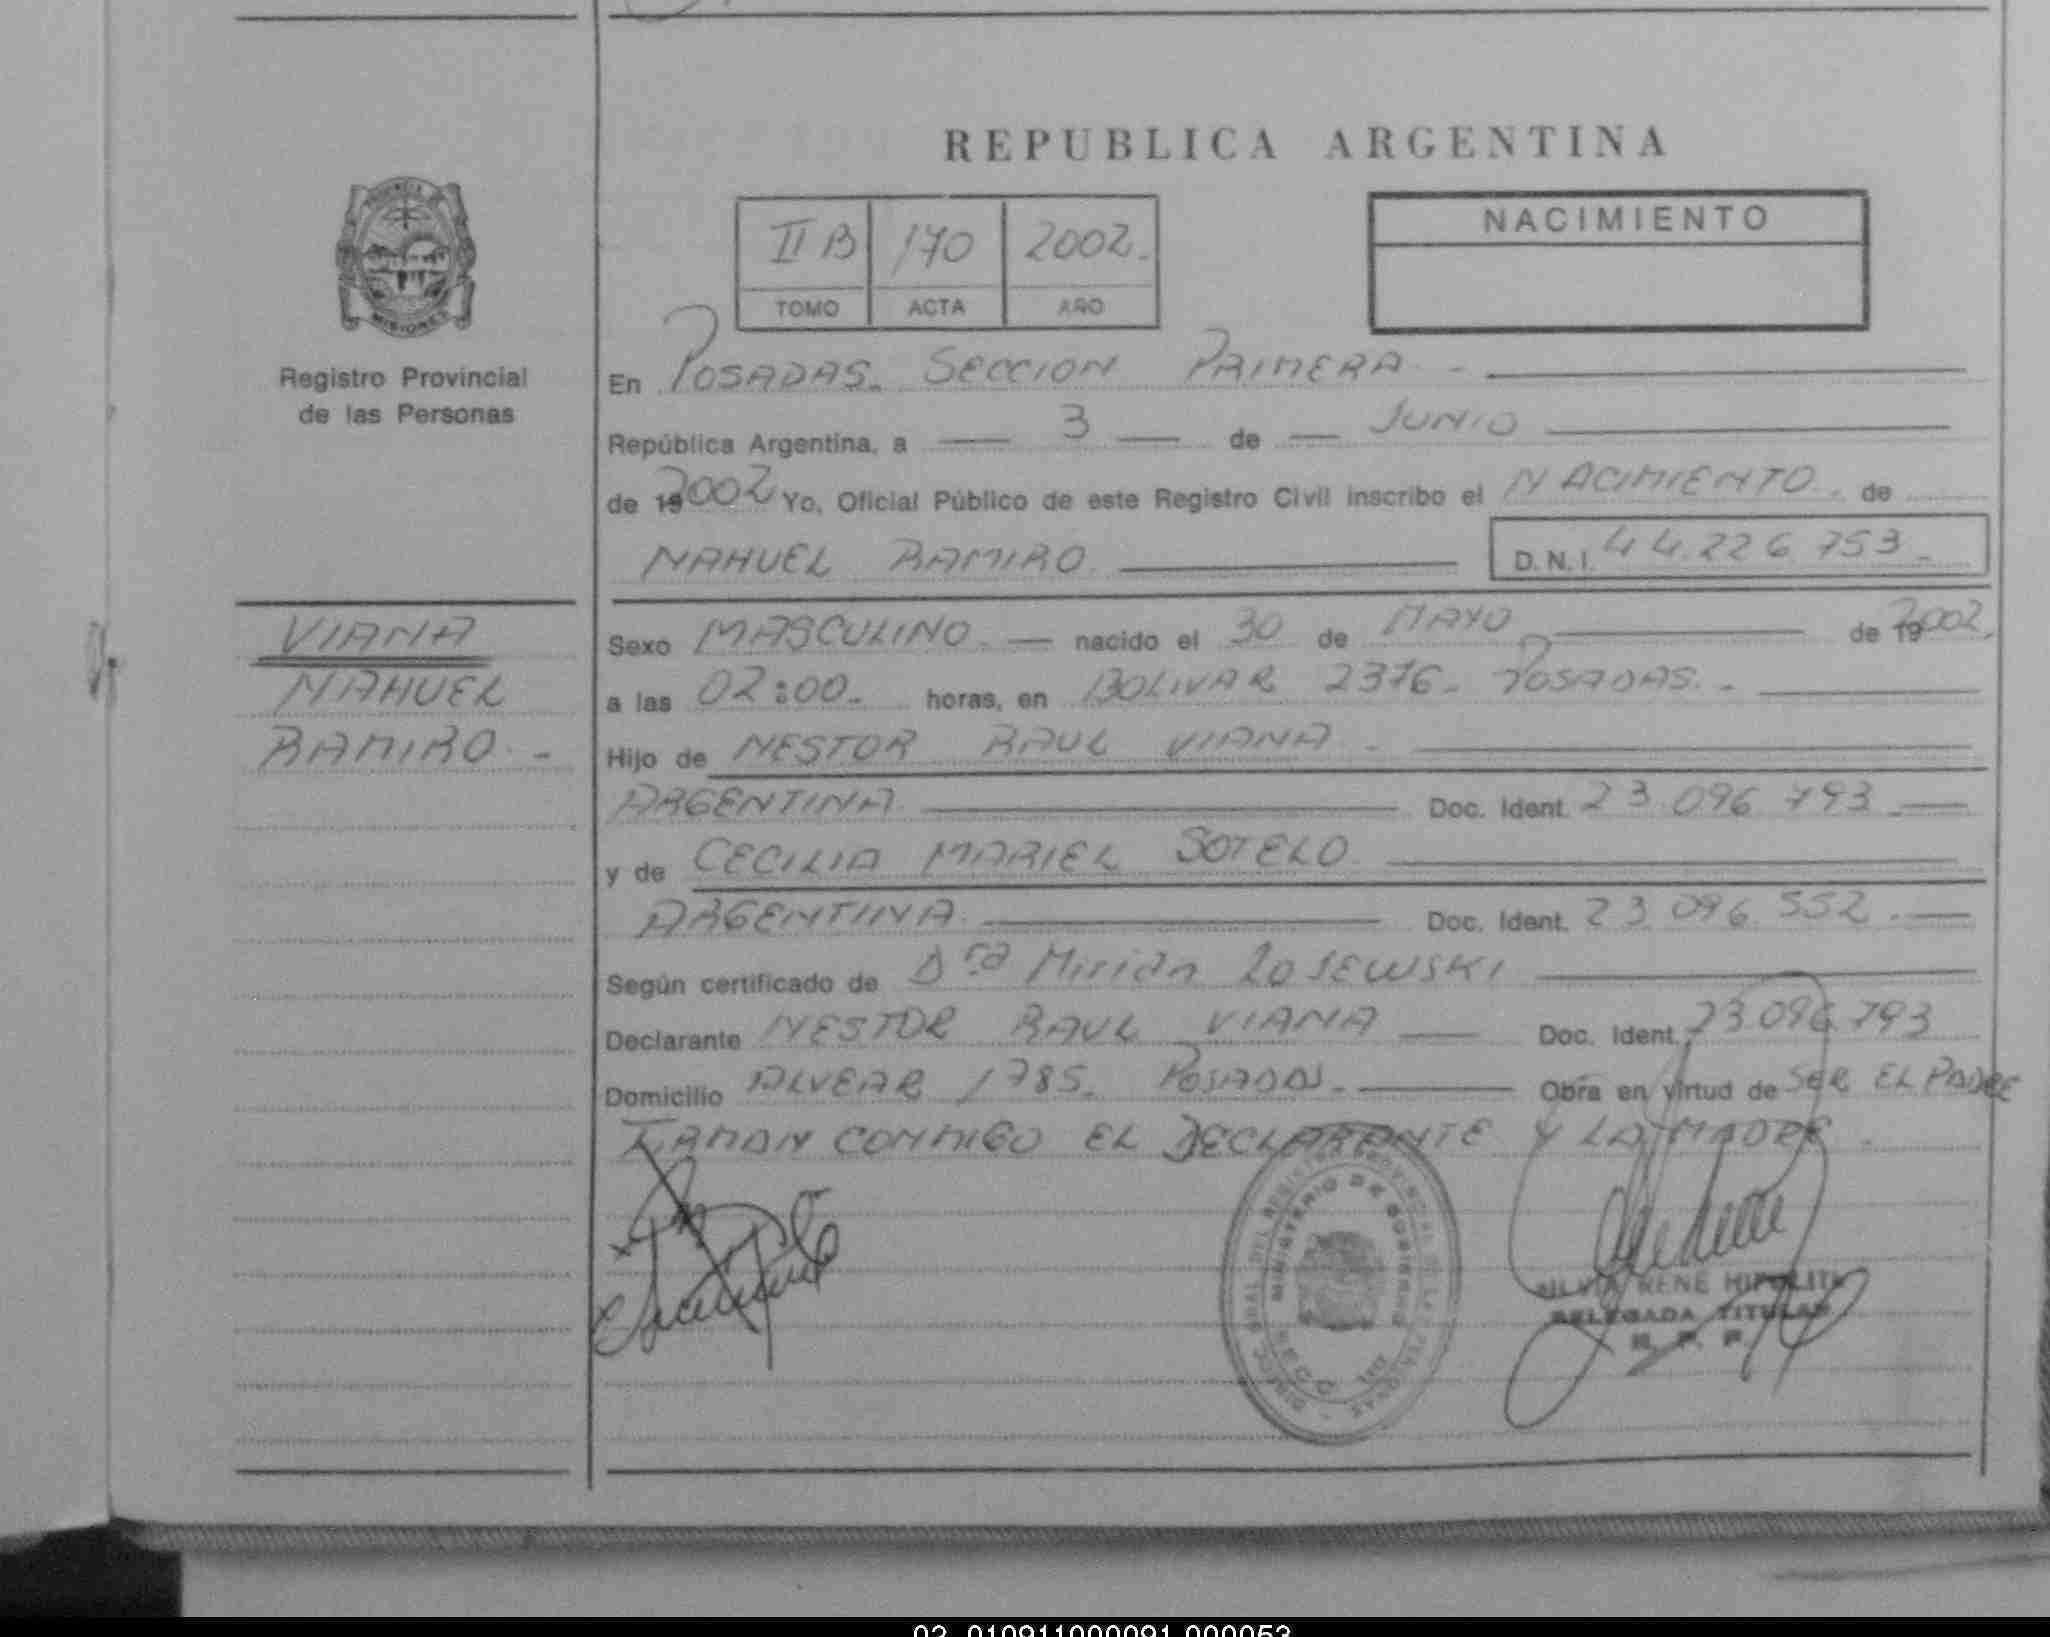 REPUBLICA ARGENTINA
PROVINCIA
MISIONES
Registro Provincial
de las Personas
II B 170 2002.
TOMO ACTA AÑO
NACIMIENTO
En POSADAS. SECCION PRIMERA.-
República Argentina, a 3 de JUNIO
de 19 2002 Yo, Oficial Público de este Registro Civil inscribo el NACIMIENTO. de
NAHUEL RAMIRO. D.N.I. 44.226.753.-
VIANA
NAHUEL
RAMIRO.-
Sexo MASCULINO.- nacido el 30 de MAYO de 19 2002.
a las 02:00.- horas, en BOLIVAR 2376- POSADAS.-
Hijo de NESTOR RAUL VIANA.-
ARGENTINA. Doc. Ident. 23.096.793.-
y de CECILIA MARIEL SOTELO.
ARGENTINA. Doc. Ident. 23.096.552.-
Según certificado de Dra Mirian LOSEWSKI
Declarante NESTOR RAUL VIANA Doc. Ident. 23.096.793
Domicilio ALVEAR 1785- POSADAS.- Obra en virtud de SER EL PADRE
FIRMAN CONMIGO EL DECLARANTE Y LA MADRE.
MINISTERIO DE GOBIERNO
SILVIA RENE HIPOLITI
DELEGADA TITULAR
R. P. P.
02_010911000091_000053